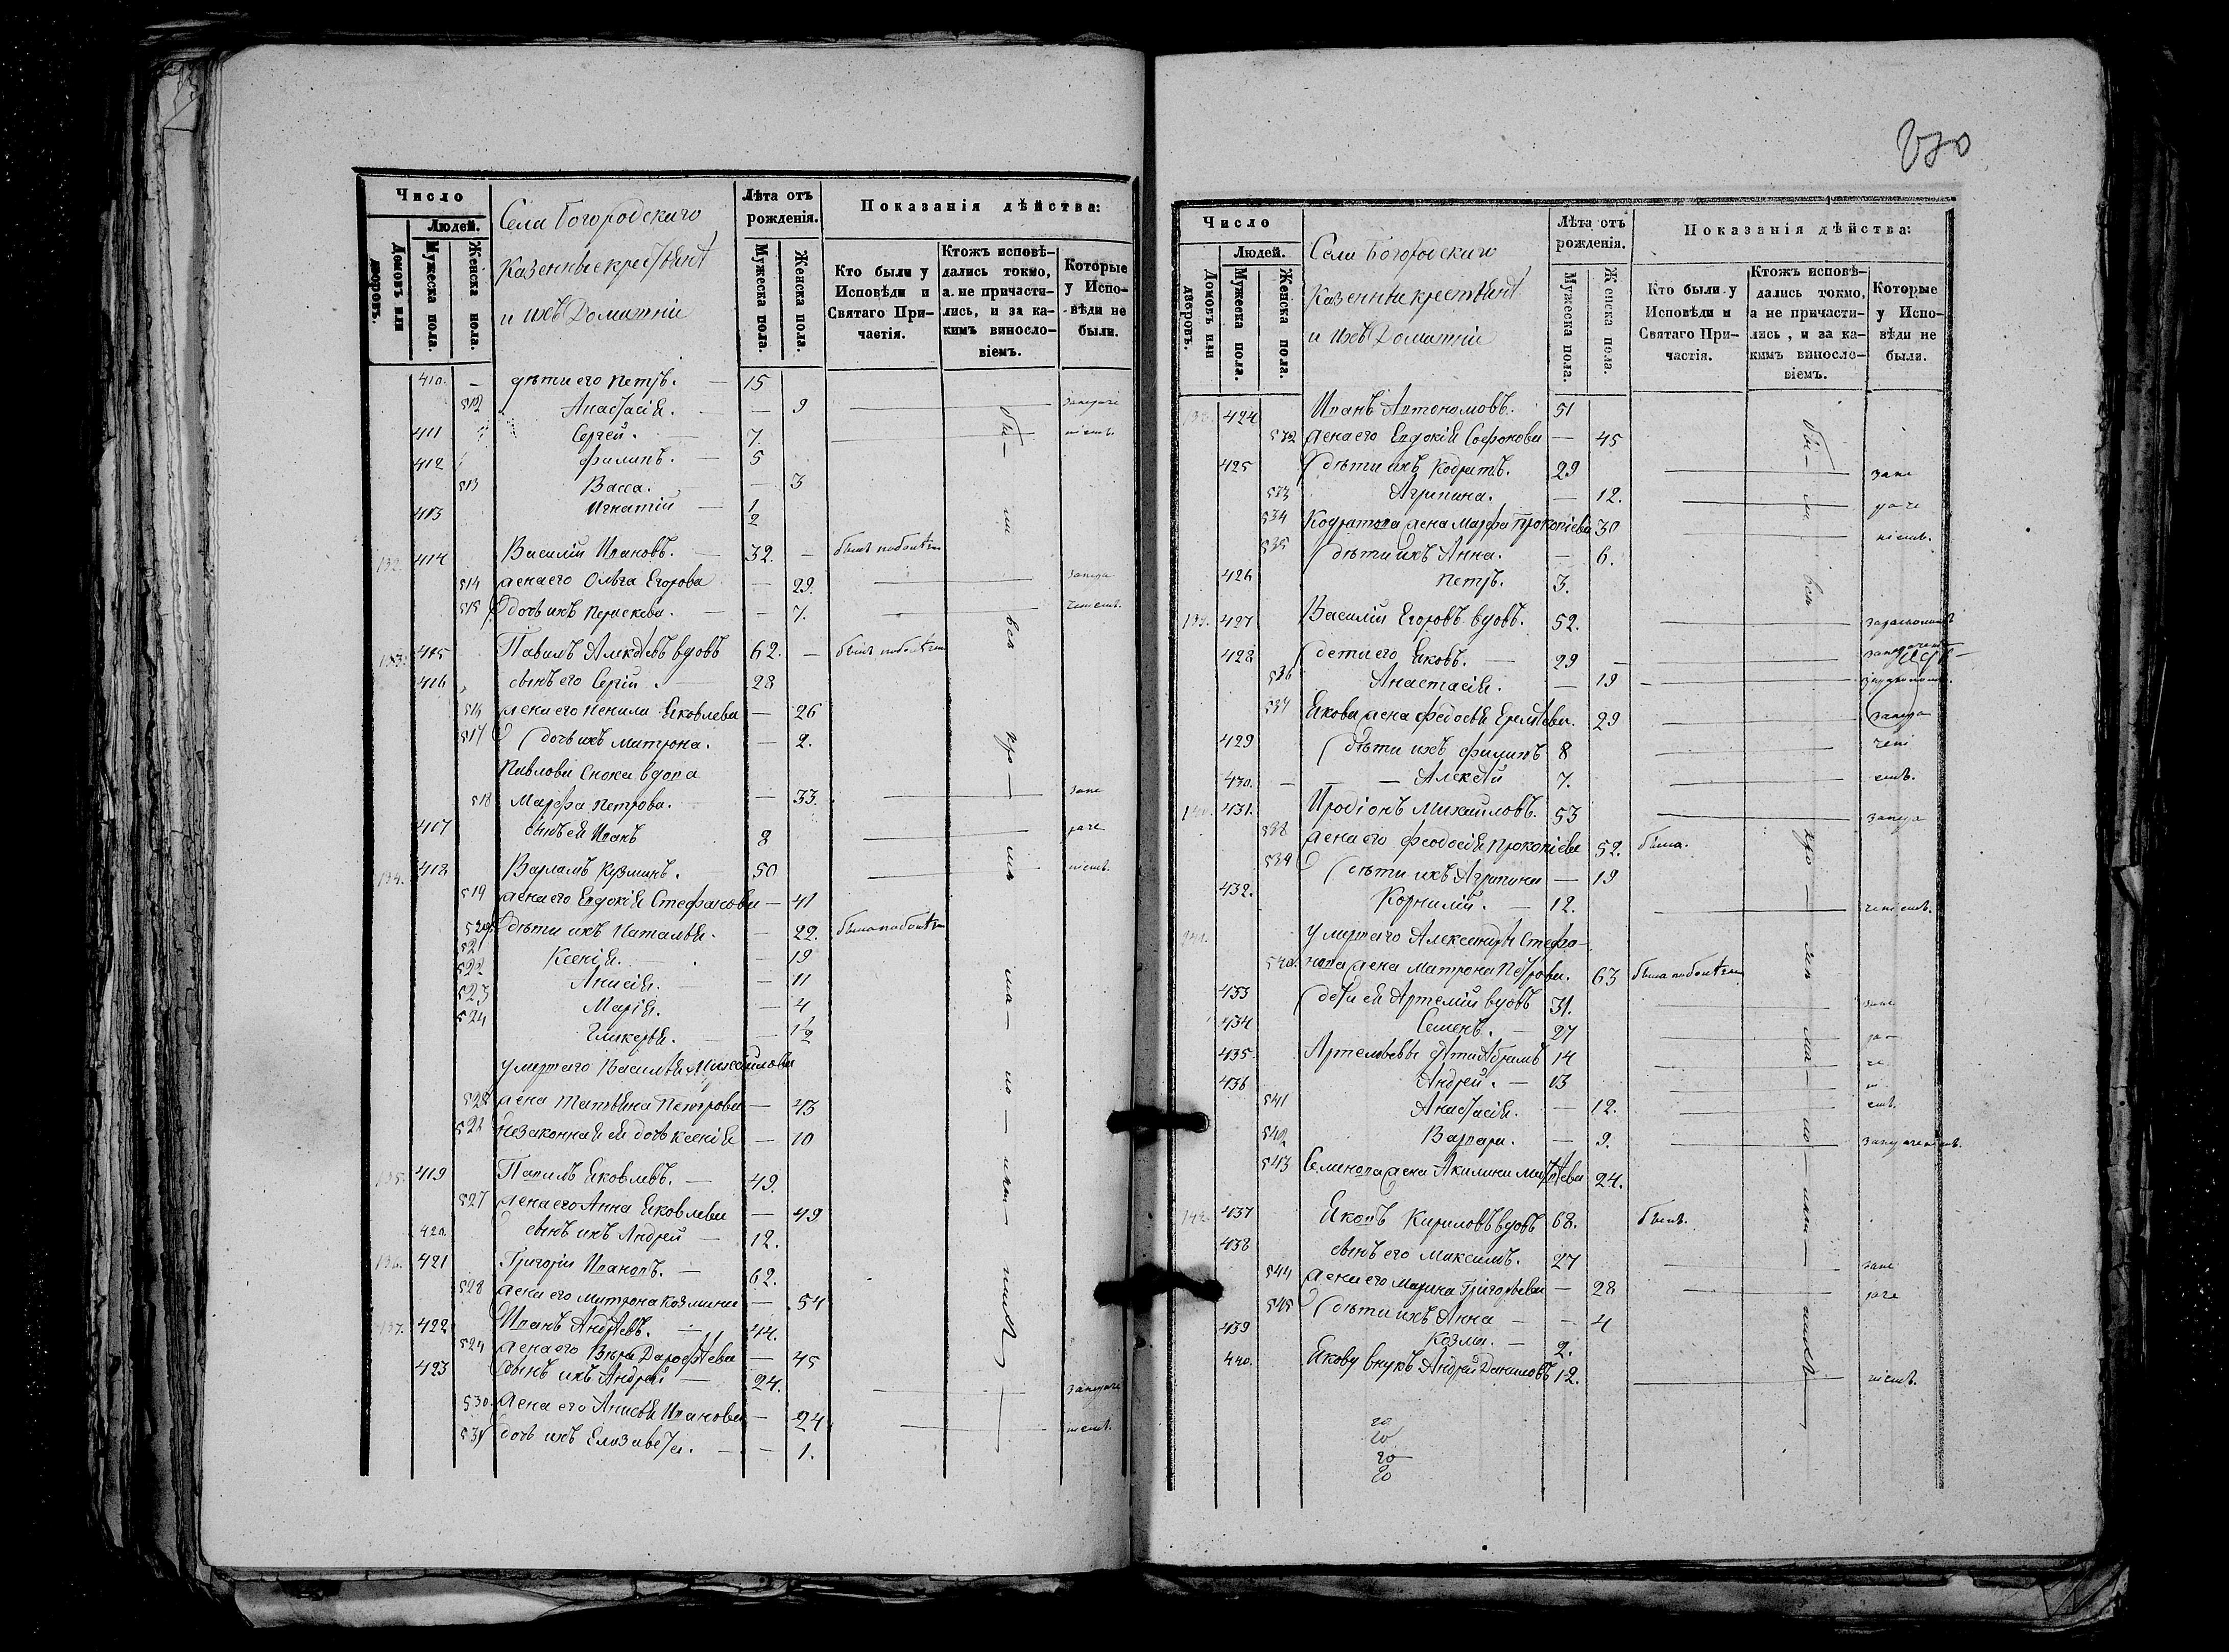 Число
Людей.
Домовъ или дворовъ.
Мужеска пола.
Женска пола.
Села Богородскаго
Казенные крестьяне
и ихъ Домашніе
Лѣта отъ рожденія.
Мужеска пола.
Женска пола.
Показанія дѣйства:
Кто были у Исповѣди и Святаго Причастія.
Ктожъ исповѣдались токмо, а не причастились, и за какимъ винословіемъ.
Которые у Исповѣди не были.
410. – дѣти его Петръ. – 15
512 Анастасія. – — 9
411 Сергей. – 7.
412 Филипъ. – 5
513 Васса. — 3
413 Игнатій – 1/2
132. 414 Василій Ивановъ. – 32. –
514 жена его Ольга Егорова — 29.
515 дочь ихъ Параскева. – — 7.
133. 415 Павилъ Алексѣевъ вдовъ 62. –
416 сынъ его Сергій. – 28
516 жена его Ненила Яковлева — 26
517 дочь ихъ Матрона. — 2.
Павлова сноха вдова
518 Марфа Петрова. — 33.
417 сынъ ея Иванъ 8
134. 418 Варламъ Кузминъ. – 50
519 жена его Евдокія Стефанова – 41
520 дѣти ихъ Наталья. – 22.
521 Ксенія. — 19
522 Анисія. — 11
523 Марія. — 4
524 Гликерья. — 1/2
умершаго Василья Михайлова
525 жена Татьяна Петрова — 43
526 незаконная ея дочь Ксенія — 10
135. 419 Павилъ Яковлевъ. – 49.
527 жена его Анна Яковлева — 49
420. сынъ ихъ Андрей – 12.
136. 421 Григорій Ивановъ. – 62.
528 жена его Матрона Козмина — 54
137. 422 Иванъ Андреевъ. – 44.
529 жена его Вѣра Дарофѣева — 45
423 сынъ ихъ Андрей – 24.
530. жена его Анисья Иванова – 24
531 дочь ихъ Елизавета. – — 1.
230
Число
Людей.
Домовъ или дворовъ.
Мужеска пола.
Женска пола.
Села Богородскаго
Казенные крестьяне
и ихъ Домашніе
Лѣта отъ рожденія.
Мужеска пола.
Женска пола.
Показанія дѣйства:
Кто были у Исповѣди и Святаго Причастія.
Ктожъ исповѣдались токмо, а не причастились, и за какимъ винословіемъ.
Которые у Исповѣди не были.
138. 424 Иванъ Автономовъ. 51
532 жена его Евдокія Софонова — 45
425 дѣти ихъ Кодратъ. 29
533 Агрипина. — 12.
534 Кодратова жена Марфа Прокопіева 30
535 дѣти ихъ Анна. — 6.
426 Петръ. 3.
139. 427 Василій Егоровъ вдовъ. 52.
428 дети его Яковъ. – 29 –
536 Анастасія. — 19
537 Якова жена Федосья Еремѣева. 29
429 дѣти ихъ Филипъ 8
430. – – Алексѣй 7.
140. 431. Иродіонъ Михайловъ. 53
538 жена его Феодосія Прокопіева 52. была.
539 дѣти ихъ Агрипина — 19
432. Корнилій. – 12.
141. умершаго Александра Стефа-
540. нова жена Матрона Петрова. 63
433 дети ея Артемій вдовъ 31.
434 Семенъ. – 27
435. Артемьевы дѣти Абрамъ 14
436 Андрей. – 13
541 Анастасія. — 12.
542 Варвара. — 9.
543 Семенова жена Акилина Матвѣева 24.
142. 437 Яковъ Кириловъ вдовъ 68. былъ.
438 сынъ его Максимъ. 27
544 жена его Марина Григорьева — 28
545 дѣти ихъ Анна – – 4
439 Козма. – 2.
440. Якову внукъ Андрей Даниловъ 12.
20
20
20
20